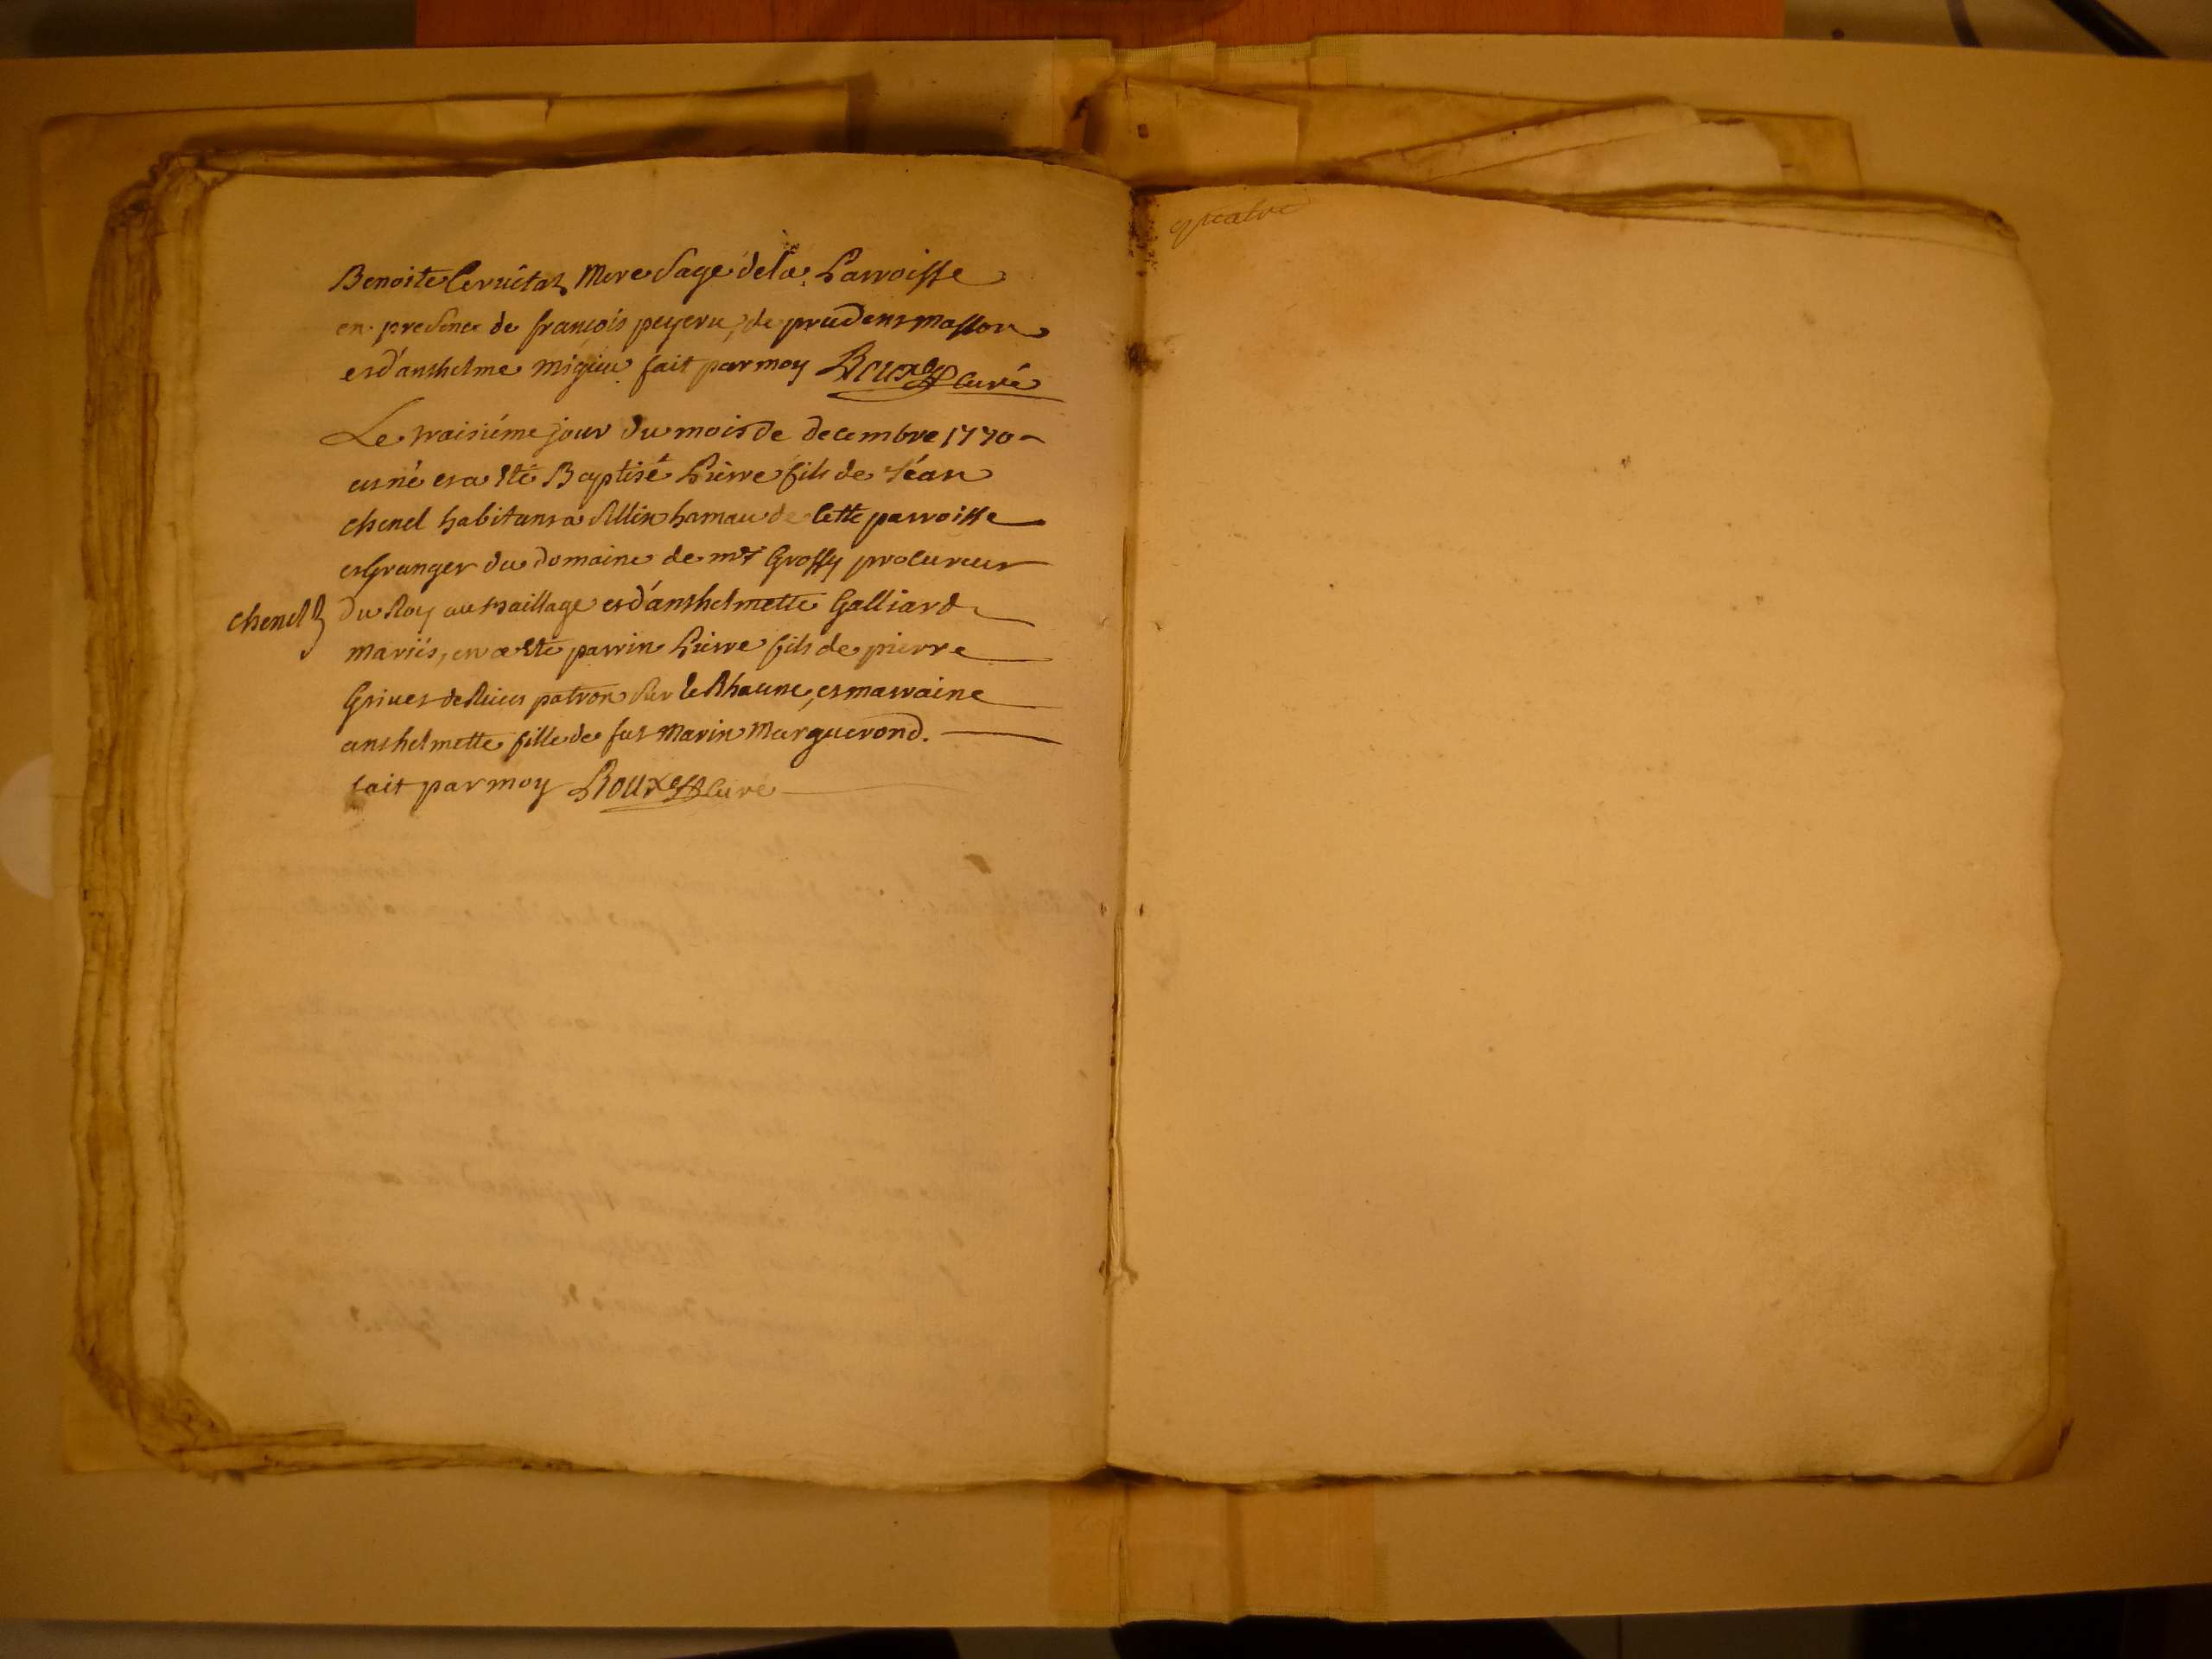 Benoite Mere Sage de la Parroisse
en presence de françois peyeru, de prudent Masson
et d'anthelme miguiu fait par moy Roux curé
Le traisiéme jour du mois de decembre 1770
est né et a eté Baptisé Pierre fils de Jéan
chenel habitant a Sillin hamau de Cette parroisse
et Granger du Domaine de mr Grossy procureur
chenel
Du Roy au Baillage et d'anthelmette Galliard
mariés, en a eté parrin Pierre fils de pierre
patron sur le Rhaune, et marraine
anthelmette fille de fut Marin Marguerond.
fait par moy Roux curé
quatre